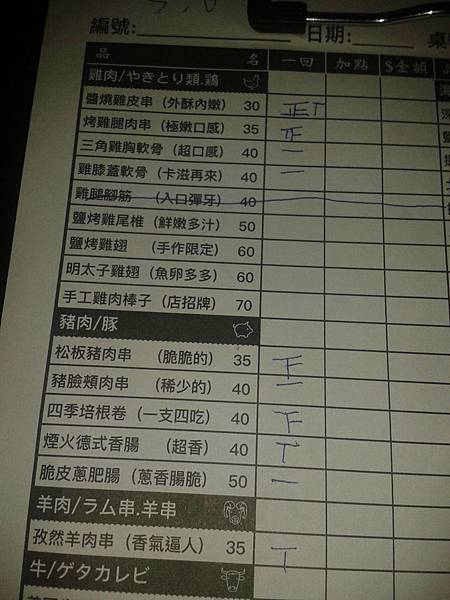 編號: 日期: 桌
品 名 一回 加點 $金額
雞肉/やきとり類.鶏
醬燒雞皮串(外酥內嫩) 30 正T
烤雞腿肉串(極嫩口感) 35 正
三角雞胸軟骨(超口感) 40 一
雞膝蓋軟骨(卡滋再來) 40 一
雞腿腳筋 (入口彈牙) 40
鹽烤雞尾椎(鮮嫩多汁) 50
鹽烤雞翅 (手作限定) 60
明太子雞翅(魚卵多多) 60
手工雞肉棒子(店招牌) 70
豬肉/豚
松板豬肉串 (脆脆的) 35 下
豬臉頰肉串 (稀少的) 40 一
四季培根卷(一支四吃) 40 下
煙火德式香腸 (超香) 40 T
脆皮蔥肥腸(蔥香腸脆) 50 一
羊肉/ラム串.羊串
孜然羊肉串(香氣逼人) 35 T
牛/ゲタカレビ